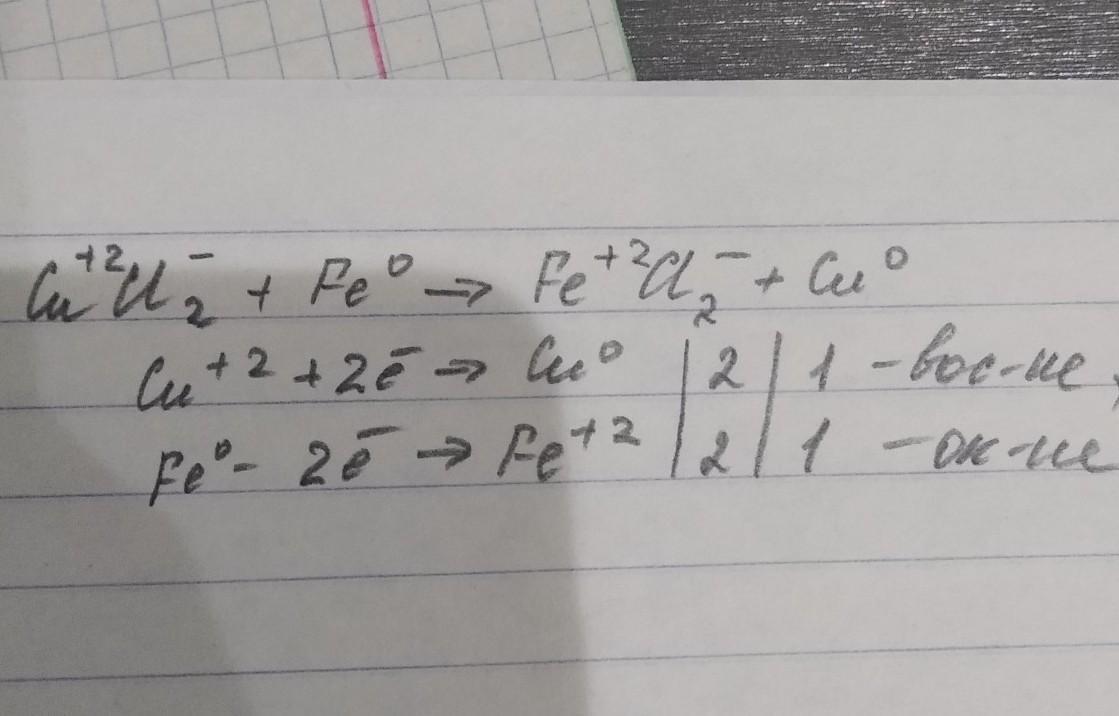 Cu⁺²Cl₂⁻ + Fe⁰ → Fe⁺²Cl₂⁻ + Cu⁰
Cu⁺² + 2e̅ → Cu⁰ | 2 | 1 - вос-ие
Fe⁰ - 2e̅ → Fe⁺² | 2 | 1 - ок-ие